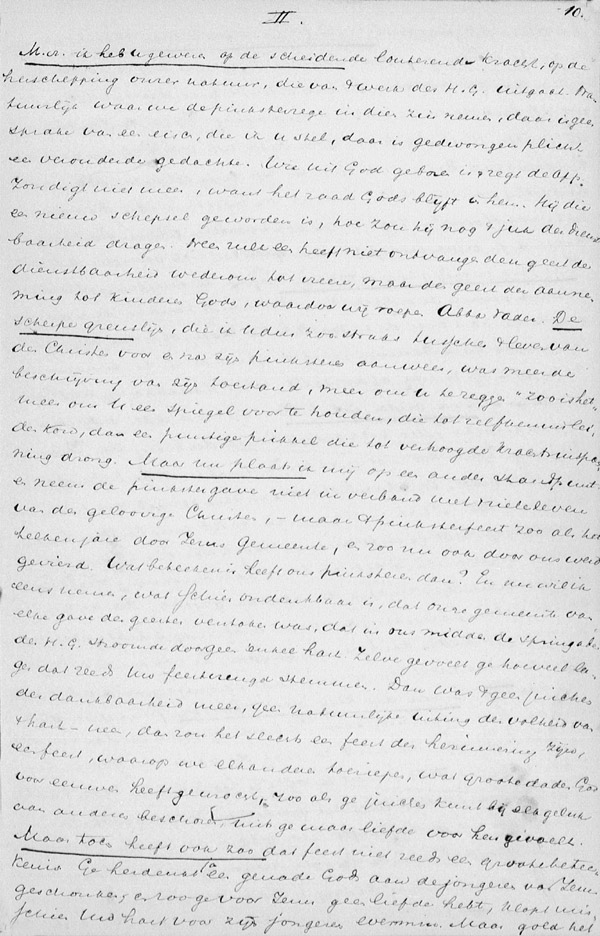 II. 10.
M.a. ik heb u gewezen op de scheidende louterende kracht, op de
herschepping onzer natuur, die van 't werk des H.G. uitgaat. Na-
tuurlijk waar we de pinksterzege in dien zin nemen, daar is geen
sprake van een eisch, die ik u stel, daar is gedwongen plicht
een gedachte. Wie uit God geboren is zegt de App.
zondigt niet meer, want het zaad Gods blijft in hem. Hij die
een nieuw schepsel geworden is, hoe zou hij nog 't juk der dienst
baarheid dragen. Neen zulk een heeft niet ontvangen den geest der
dienstbaarheid wederom tot vreeze, maar den geest der aanne-
ming tot kinderen Gods, waardoor wij roepen Abba Vader. De
scherpe grenslijn, die ik u dus zoo straks tusschen 't leven van
den Christen voor en na zijn pinksteren aanwees, was meer de
beschrijving van zijn toestand, meer om u te zeggen "zoo is het"
meer om u een spiegel voor te houden, die tot zelfkennis lei-
den kon, dan een puntige prikkel die tot verhoogde krachtsinspan
ning drong. Maar nu plaats ik mij op een ander standpunt
en neem de pinkstergave niet in verband met 't zieleleven
van den geloovige Christen, - maar 't pinksterfeest zoo als het
elken jare door Jezus gemeente, en zoo nu ook door ons werd
gevierd. Wat beteekenis heeft ons pinksteren dan? En nu wil ik
eens nemen, wat schier ondenkbaar is, dat onze gemeente van
elke gave des geestes verstoken was, dat in ons midden de springader
des H.G. stroomde door geen enkel hart. Zelve gevoelt ge hoeveel la-
ger dat reeds uw feestvreugd stemmen. Dan was 't geen juichen
der dankbaarheid meer, geen natuurlijke uiting der volheid van
't hart - neen, dan zou het slechts een feest der herinnering zijn,
een feest, waarop we elkander toeriepen, wat groote daden God
voor eeuwen heeft gewrocht, zoo als ge juichen kunt bij elk geluk
aan anderen beschoren, mits ge maar liefde voor hen gevoelt.
Maar toch heeft ook zoo dat feest niet reeds een groote betee-
kenis. Ge herdenkt een genade Gods aan de jongeren van Jezus
geschonken, en zoo ge voor Jezus geen liefde hebt, klopt mis-
schien uw hart voor zijn jongeren evenmin. Maar gold het